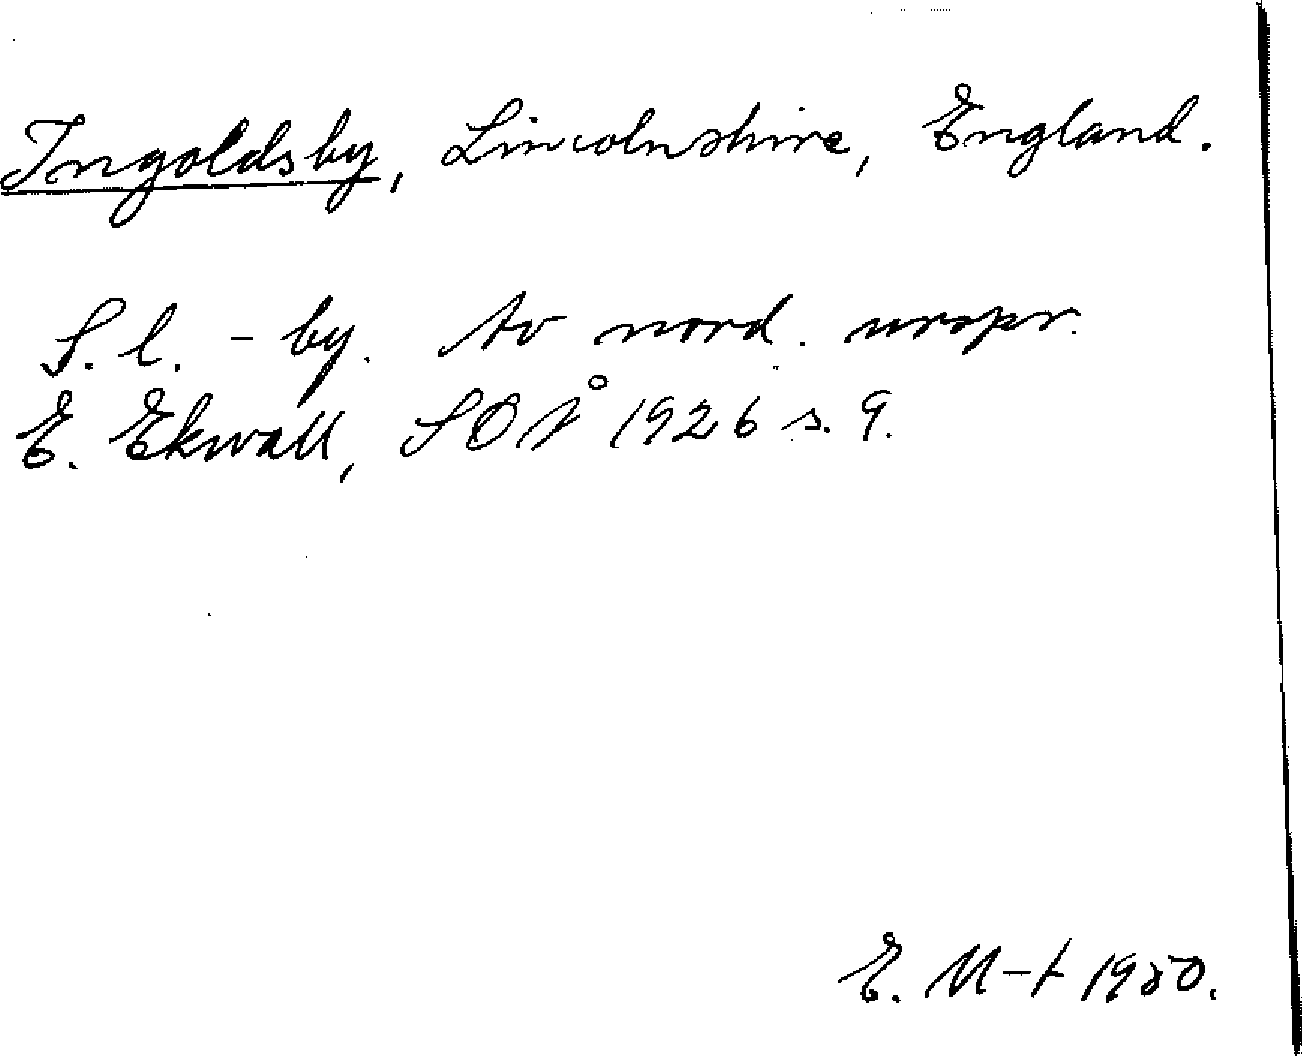 Ingoldsby, Lincolnshire, England.
S. l. - by. Av nord. urspr.
E. Ekwall, SOÅ 1926 s. 9.
E. M-t 1950.